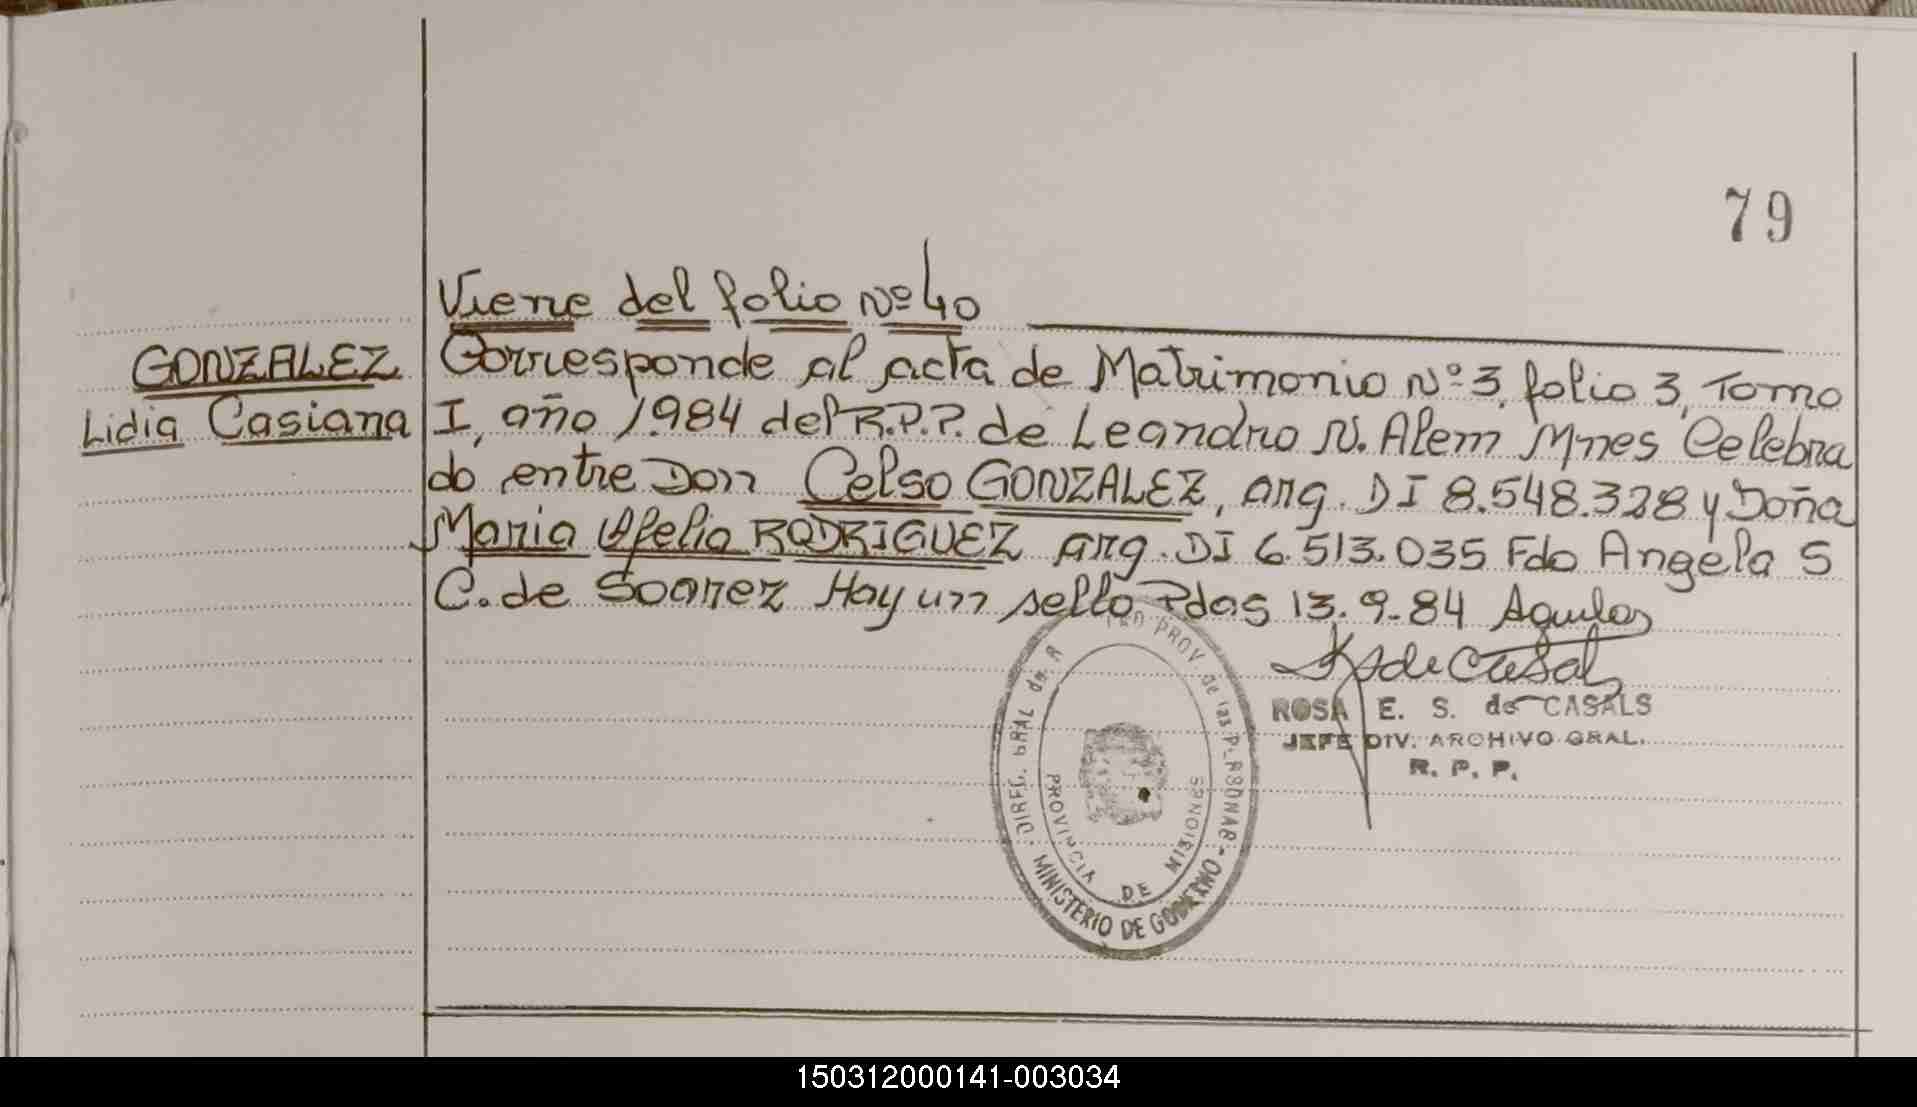 79
Viene del folio Nº 40
GONZALEZ
Lidia Casiana
Corresponde al acta de Matrimonio Nº 3, folio 3, Tomo
I, año 1.984 del R.P.P. de Leandro N. Alem Mnes Celebra
do entre Don Celso GONZALEZ, arg. DI 8.548.328 y Doña
Maria Ofelia RODRIGUEZ arg. DI 6.513.035 Fdo Angela S
C. de Soarez Hay un sello Pdas 13.9.84 Aguilar
ROSA E. S. de CASALS
JEFE DIV. ARCHIVO GRAL.
R. P. P.
DIREC. GRAL de
PROV. de las PERSONAS
MINISTERIO DE GOBIERNO
PROVINCIA DE MISIONES
150312000141-003034